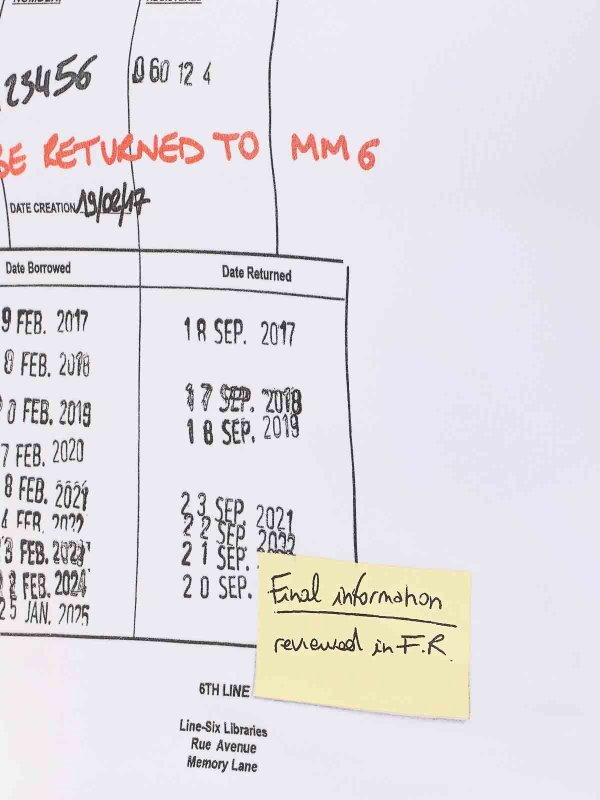 23456
060 12 4
BE RETURNED TO MM6
DATE CREATION 19/02/17
Date Borrowed Date Returned
9 FEB. 2017 18 SEP. 2017
8 FEB. 2018
17 SEP. 2018
0 FEB. 2019 18 SEP. 2019
7 FEB. 2020
8 FEB. 2021 23 SEP. 2021
4 FEB. 2022 22 SEP. 2022
3 FEB. 2023 21 SEP.
2 FEB. 2024 20 SEP.
25 JAN. 2025
Final information
reviewed in F.R.
6TH LINE
Line-Six Libraries
Rue Avenue
Memory Lane